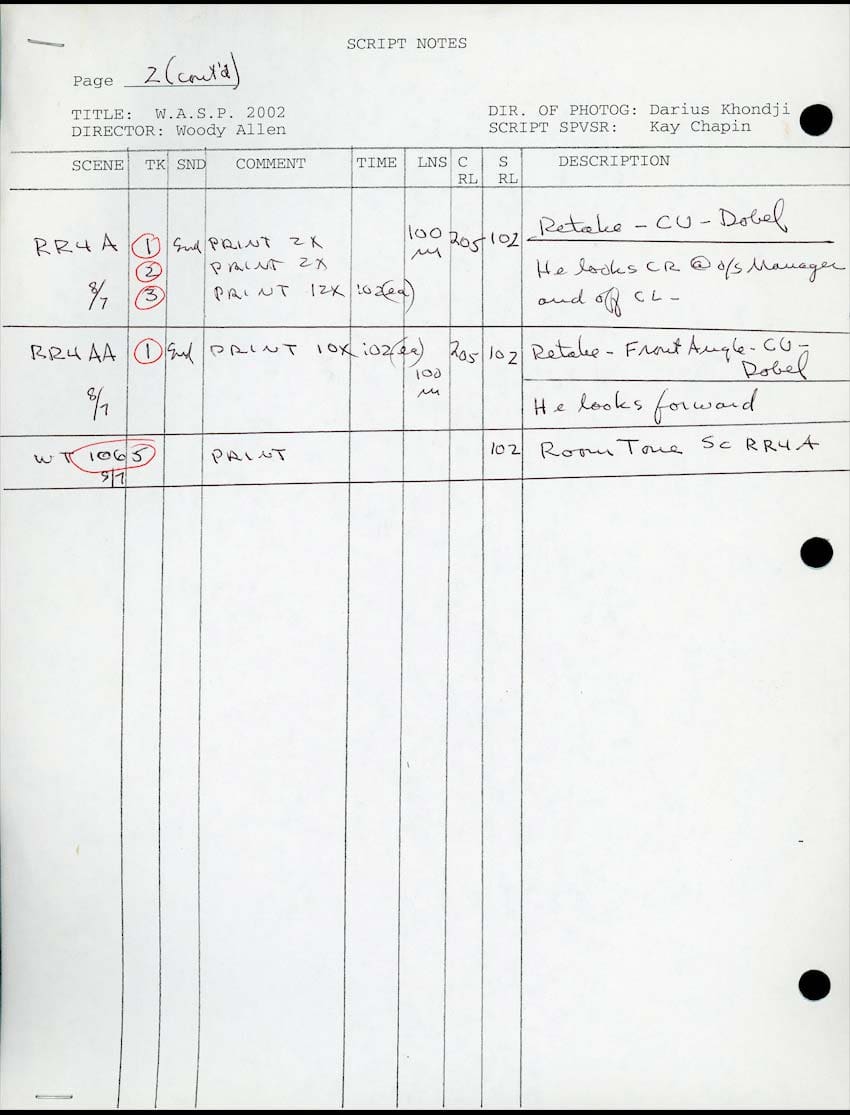 SCRIPT NOTES
Page 2 (cont'd)
TITLE: W.A.S.P. 2002 DIR. OF PHOTOG: Darius Khondji
DIRECTOR: Woody Allen SCRIPT SPVSR: Kay Chapin
SCENE TK SND COMMENT TIME LNS C RL S RL DESCRIPTION
Retake - CU - Dobel
RR4A 1 Snd PRINT 2X 100 m 205 102
2 PRINT 2X He looks CR @ o/s Manager
8/7 3 PRINT 12X :02(ea) and off CL -
RR4AA 1 Snd PRINT 10X :02(ea) 100 m 205 102 Retake - Front Angle - CU -
Dobel
8/7 He looks forward
WT 1065 PRINT 102 Room Tone Sc RR4A
8/7